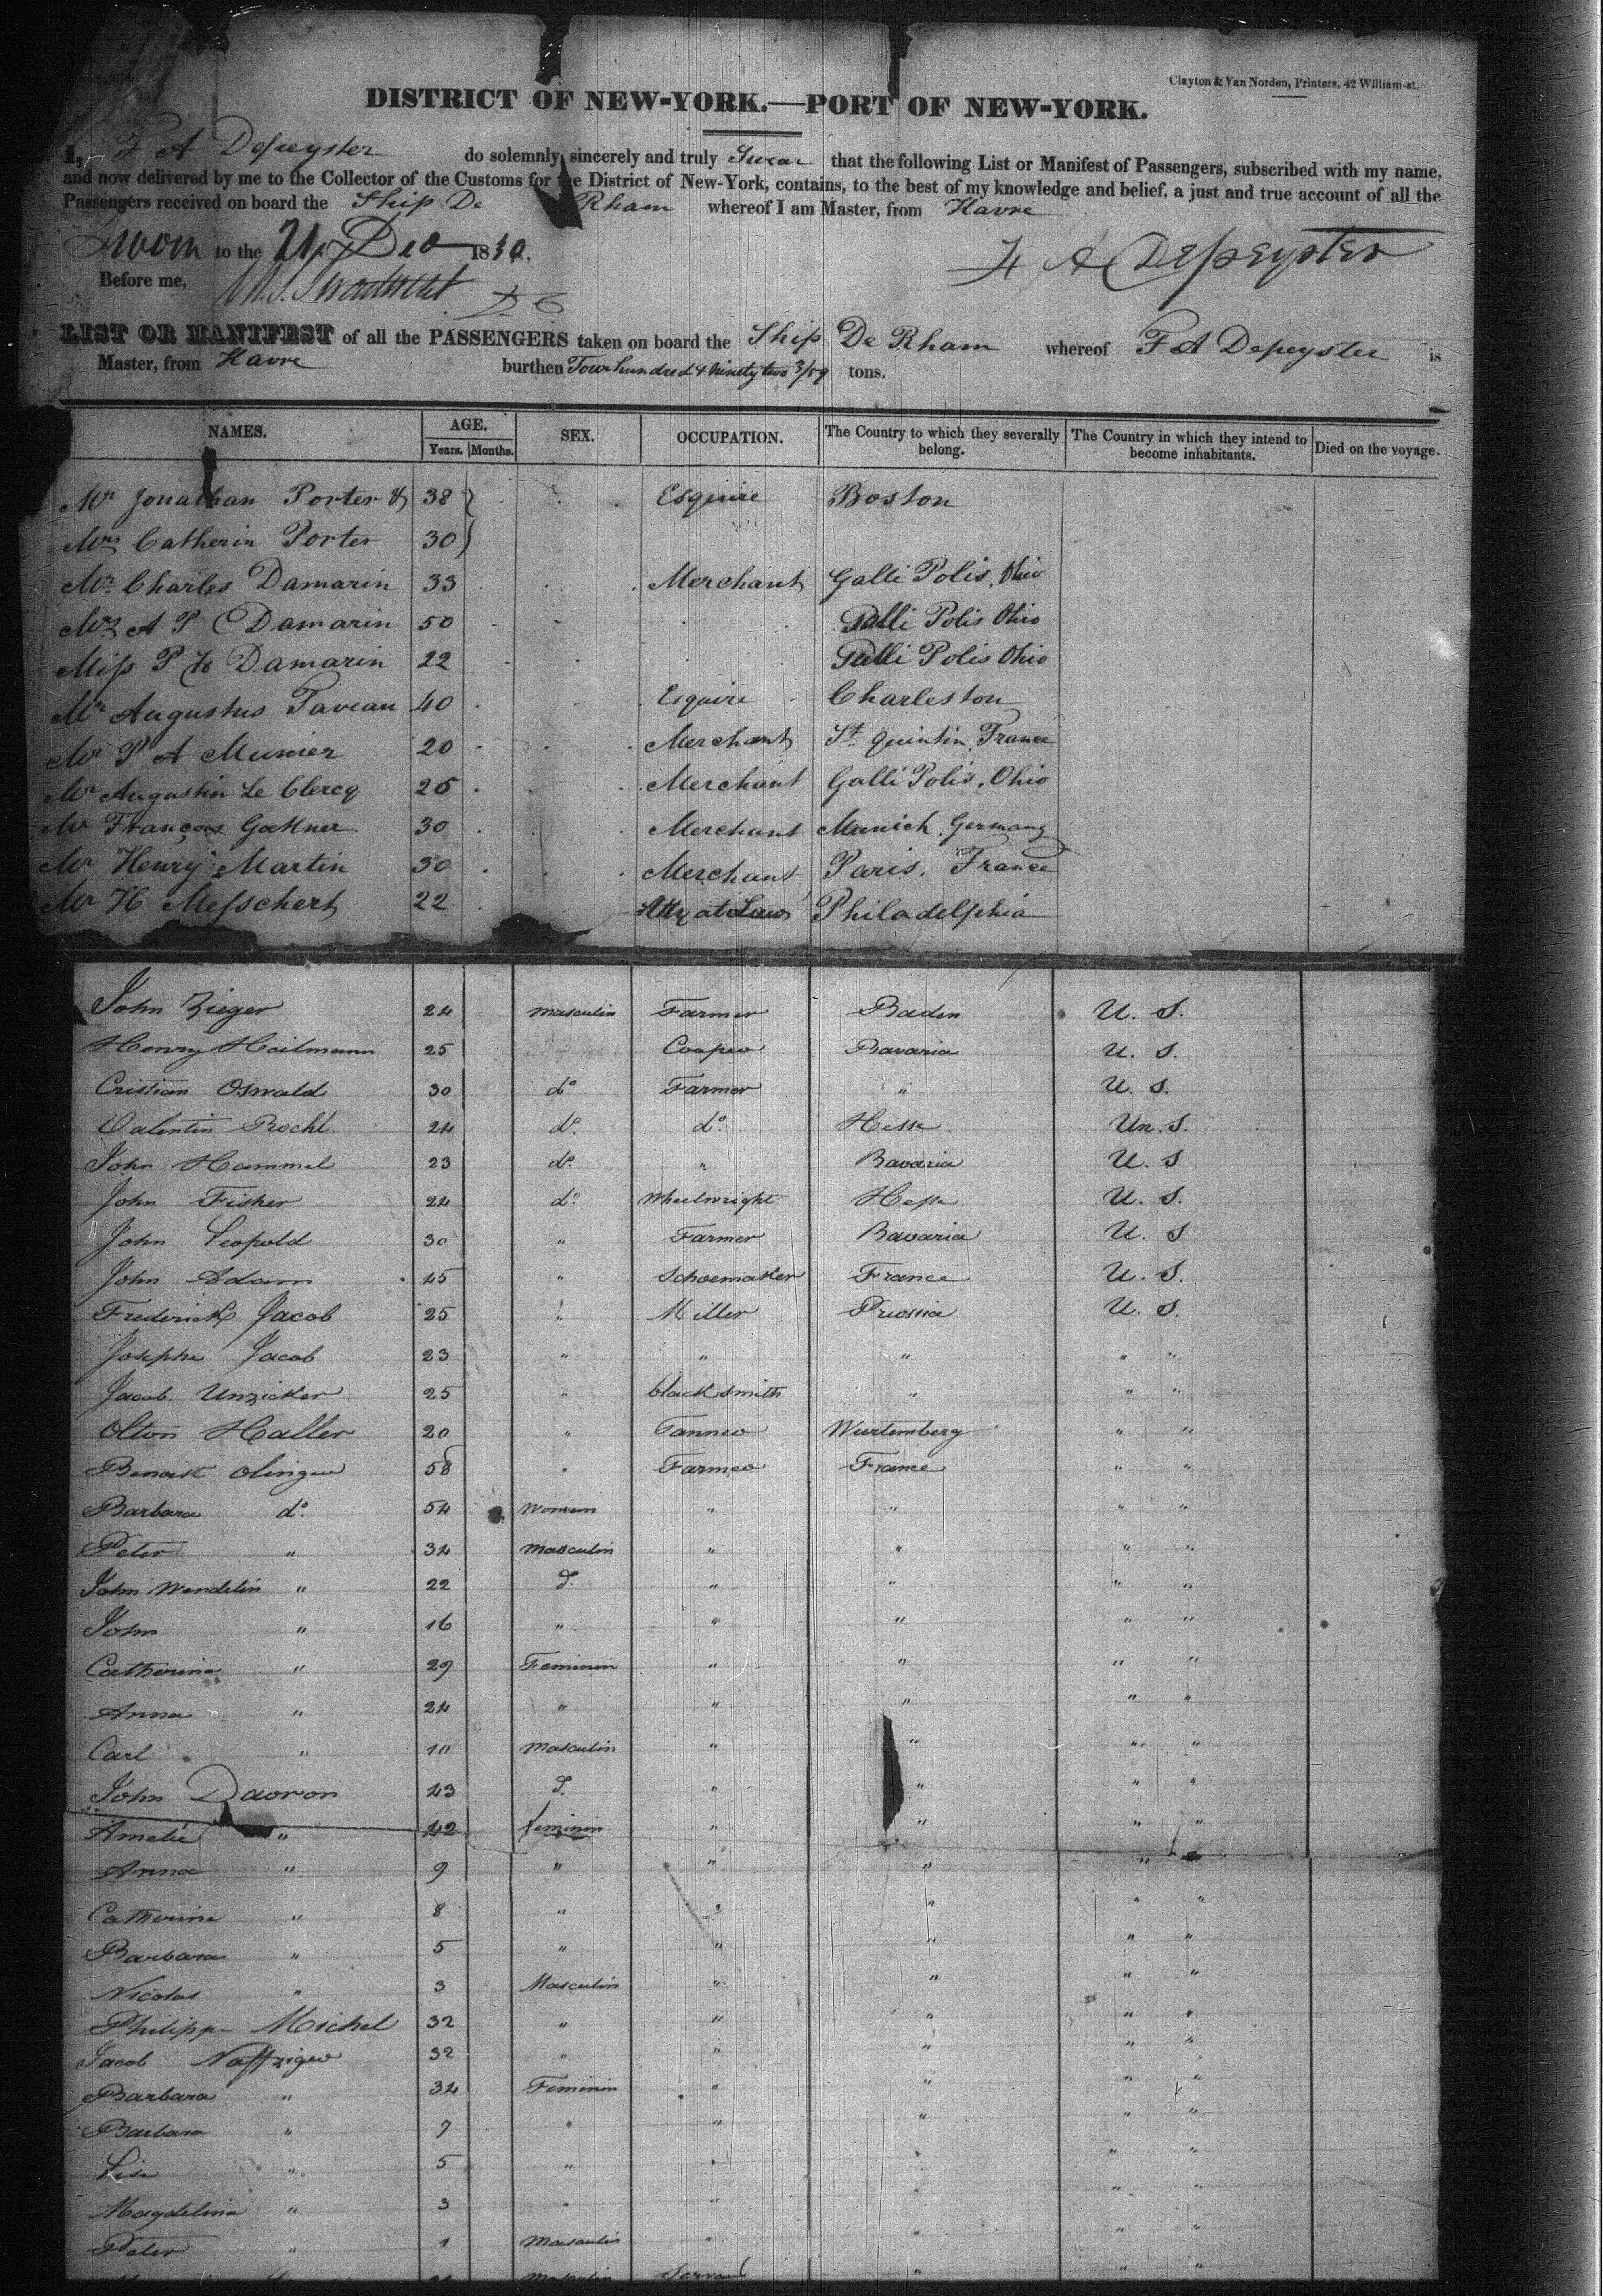 Clayton & Van Norden, Printers, 42 William-st.
DISTRICT OF NEW-YORK.—PORT OF NEW-YORK.
I, F A Depeyster do solemnly, sincerely and truly Swear that the following List or Manifest of Passengers, subscribed with my name,
and now delivered by me to the Collector of the Customs for the District of New-York, contains, to the best of my knowledge and belief, a just and true account of all the
Passengers received on board the Ship De Rham whereof I am Master, from Havre
Sworn to the 21 Dec 1830.
F A Depeyster
Before me,
LIST OR MANIFEST of all the PASSENGERS taken on board the Ship De Rham whereof F A Depeyster is
Master, from Havre burthen Four hundred & Ninety two 3/59 tons.
NAMES. AGE. Years. Months. SEX. OCCUPATION. The Country to which they severally belong. The Country in which they intend to become inhabitants. Died on the voyage.
Mr Jonathan Porter & 38 Esquire Boston
Mrs Catherin Porter 30
Mr Charles Damarin 33 Merchant Galli Polis, Ohio
Mrs A P Damarin 50 Galli Polis Ohio
Miss P H Damarin 22 Galli Polis Ohio
Mr Augustus Taveau 40 Esquire Charleston
Mr P A Munier 20 Merchant St Quintin, France
Mr Augustin Le Clercq 26 Merchant Galli Polis, Ohio
Mr François 30 Merchant Munich, Germany
Mr Henry Martin 30 Merchant Paris. France
Mr H Messchert 22 Atty at Law Philadelphia
John Zieger 24 masculin Farmer Baden U. S.
Henry Heilmann 25 Cooper Bavaria U. S.
Cristian Oswald 30 do Farmer " U. S.
Valentin Prochl 24 do. do. Hesse Un. S.
John Hammel 23 do. " Bavaria U. S
John Fisher 24 do. Wheelwright Hesse U. S.
John Leopold 30 " Farmer Bavaria U. S
John Adam 45 " Schoemaker France U. S.
Frederick Jacob 25 " Miller Prussia U. S.
Josephe Jacob 23 " " " " "
Jacob Unzicker 25 " black smith " " "
Olton Haller 20 " Tanner Wurtemberg " "
Benoist Olinger 58 " Farmer France " "
Barbara do. 54 Women " " " "
Peter " 34 Masculin " " " "
John Wendelin " 22 d. " " " "
John " 16 " " " " "
Catherine " 29 Feminin " " " "
Anna " 24 " " " " "
Carl " 10 Masculin " " " "
John Davron 43 d. " " " "
Amelie " 42 feminin " " " "
Anna " 9 " " " "
Catherine " 8 " " " " "
Barbara " 5 " " " " "
Nicolas " 3 Masculin " " " "
Philipp Michel 32 " " " " "
Jacob Naffziger 32 " " " " "
Barbara " 34 Feminin " " " "
Barbara " 7 " " " " "
Lise " 5 " " " " "
Magdelina " 3 " " " " "
Peter " 1 Masculin " " " "
masculin Servant " " "